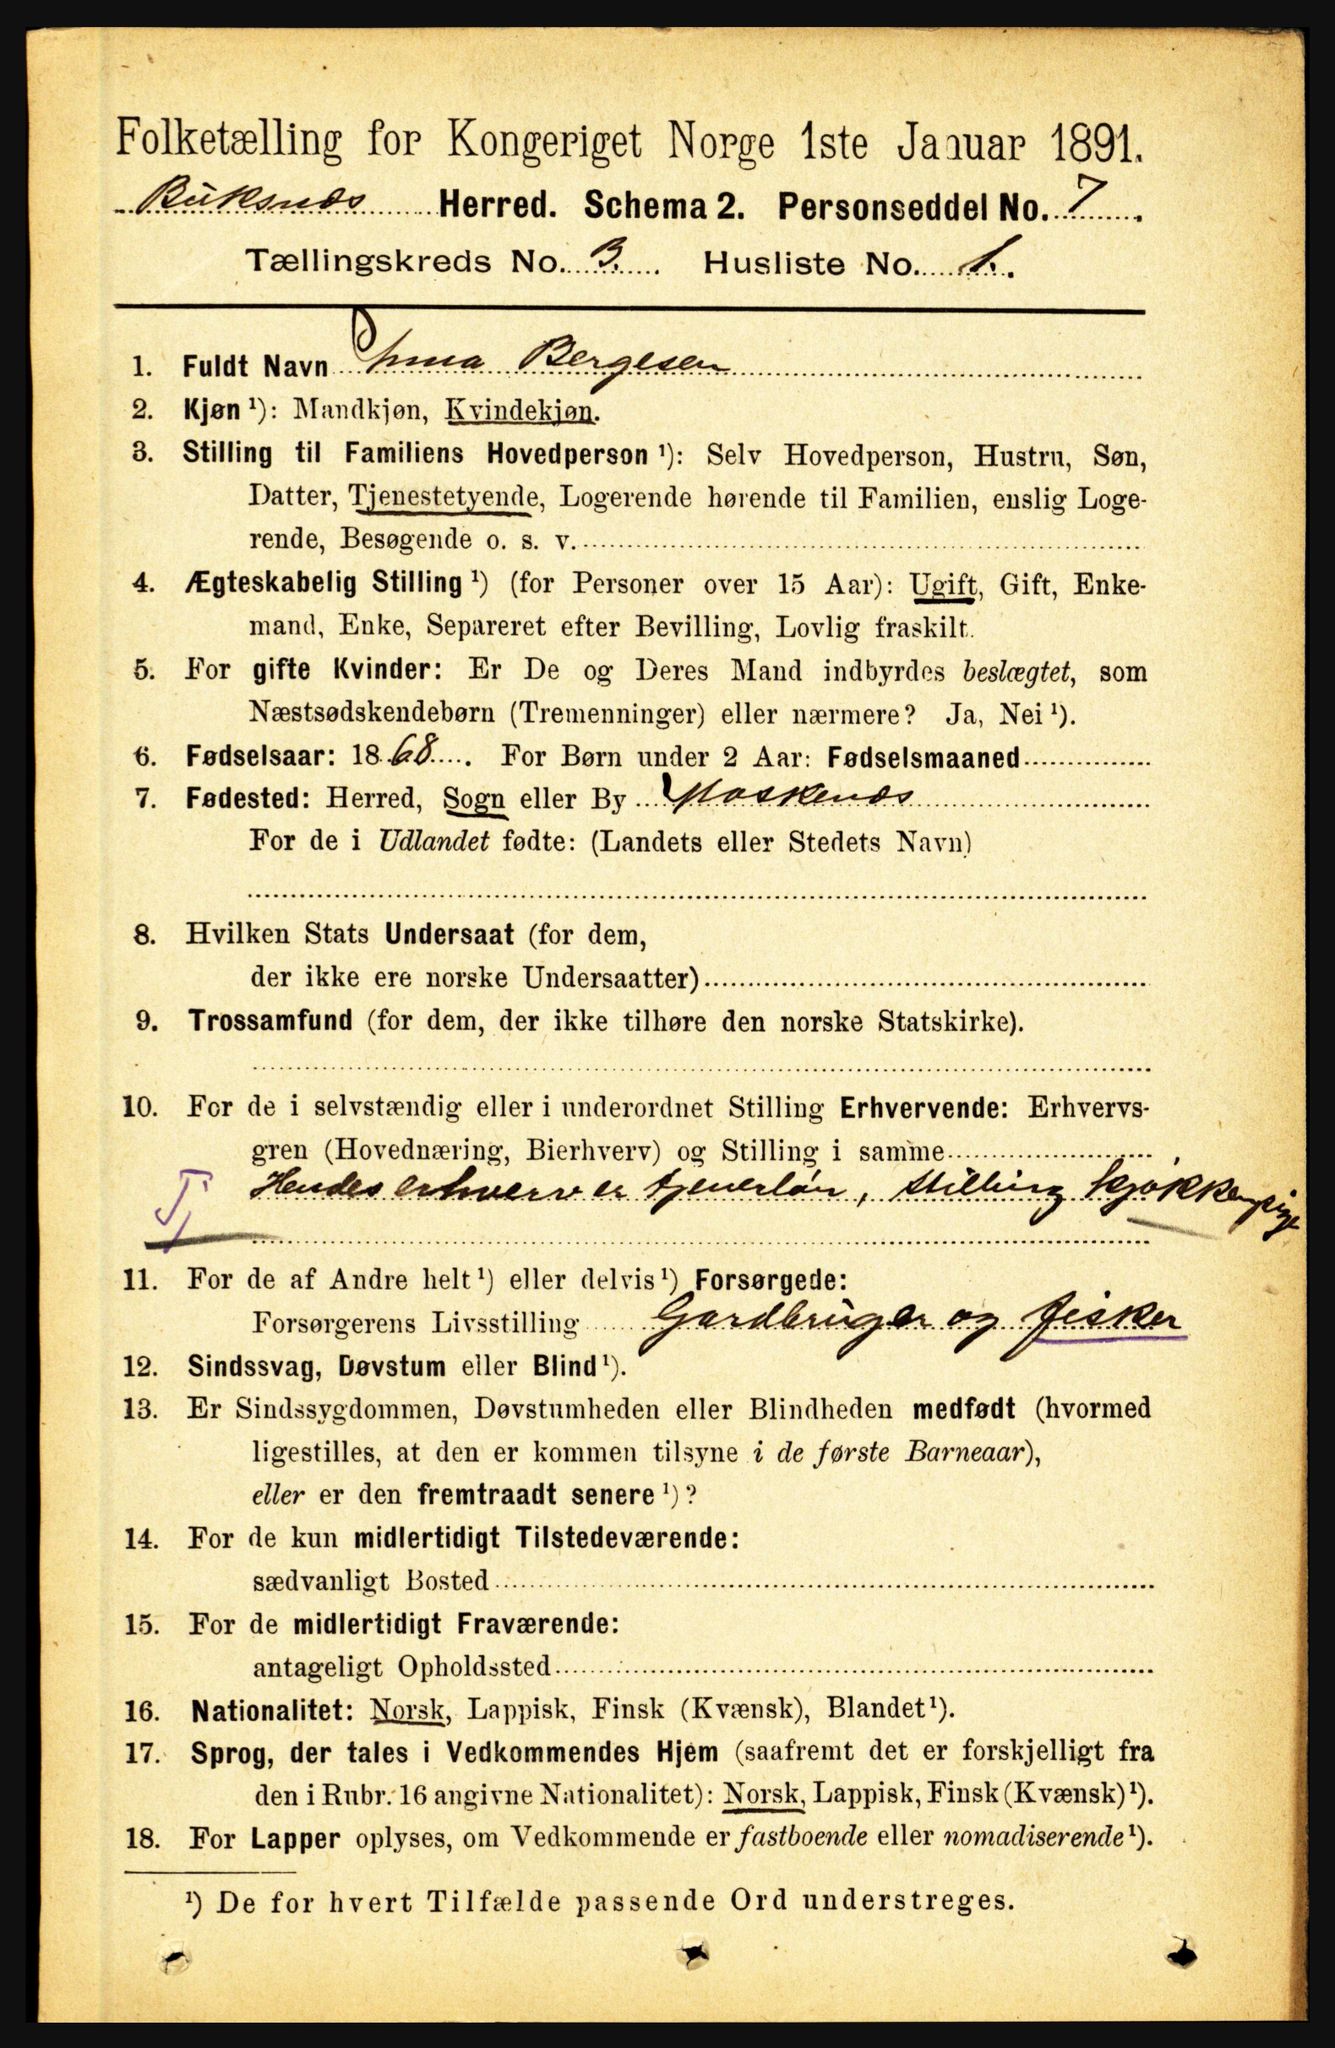 Folketælling for Kongeriget Norge 1ste Januar 1891.
Buksnæs Herred. Schema 2. Personseddel No. 7.
Tællingskreds No. 3. Husliste No. 1.
1. Fuldt Navn Anna Bergesen
2. Kjøn ¹): Mandkjøn, Kvindekjøn.
3. Stilling til Familiens Hovedperson ¹): Selv Hovedperson, Hustru, Søn,
Datter, Tjenestetyende, Logerende hørende til Familien, enslig Loge-
rende, Besøgende o. s. v.
4. Ægteskabelig Stilling ¹) (for Personer over 15 Aar): Ugift, Gift, Enke-
mand, Enke, Separeret efter Bevilling, Lovlig fraskilt.
5. For gifte Kvinder: Er De og Deres Mand indbyrdes beslægtet, som
Næstsødskendebørn (Tremenninger) eller nærmere? Ja, Nei ¹).
6. Fødselsaar: 1868. For Børn under 2 Aar: Fødselsmaaned
7. Fødested: Herred, Sogn eller By Moskenæs
For de i Udlandet fødte: (Landets eller Stedets Navn)
8. Hvilken Stats Undersaat (for dem,
der ikke ere norske Undersaatter)
9. Trossamfund (for dem, der ikke tilhøre den norske Statskirke).
10. For de i selvstændig eller i underordnet Stilling Erhvervende: Erhvervs-
gren (Hovednæring, Bierhverv) og Stilling i samme
Tj Hendes erhverv er tjenerløn, stilling kjøkkenpige
11. For de af Andre helt ¹) eller delvis ¹) Forsørgede:
Forsørgerens Livsstilling Gardbruger og fisker
12. Sindssvag, Døvstum eller Blind ¹).
13. Er Sindssygdommen, Døvstumheden eller Blindheden medfødt (hvormed
ligestilles, at den er kommen tilsyne i de første Barneaar),
eller er den fremtraadt senere ¹)?
14. For de kun midlertidigt Tilstedeværende:
sædvanligt Bosted
15. For de midlertidigt Fraværende:
antageligt Opholdssted
16. Nationalitet: Norsk, Lappisk, Finsk (Kvænsk), Blandet ¹).
17. Sprog, der tales i Vedkommendes Hjem (saafremt det er forskjelligt fra
den i Rubr. 16 angivne Nationalitet): Norsk, Lappisk, Finsk (Kvænsk) ¹).
18. For Lapper oplyses, om Vedkommende er fastboende eller nomadiserende ¹).
¹) De for hvert Tilfælde passende Ord understreges.